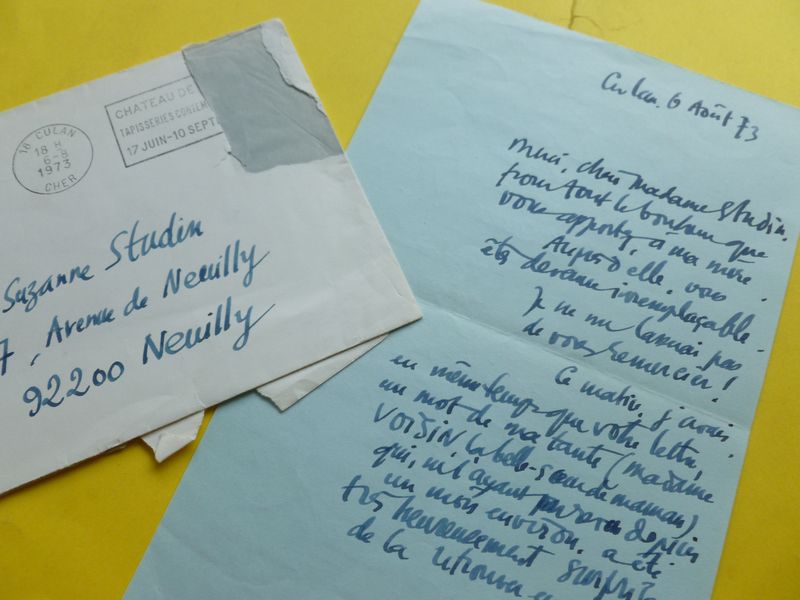 18 CULAN
18 H
6-8
1973
CHER
CHATEAU DE
TAPISSERIES CONTEM
17 JUIN-10 SEPT
Suzanne Studin
7, Avenue de Neuilly
92200 Neuilly
Culan. 6 Août 73
Merci, chère Madame Studin,
pour tout le bonheur que
vous apportez à ma mère.
Auprès d'elle, vous
êtes devenue irremplaçable.
Je ne me lasserai pas
de vous remercier!
Ce matin, j'avais,
en même temps que votre lettre,
un mot de ma tante (madame
VOISIN, la belle-sœur de maman)
qui, ne l'ayant pas vue depuis
un mois environ, a été
très heureusement surprise
de la retrouver